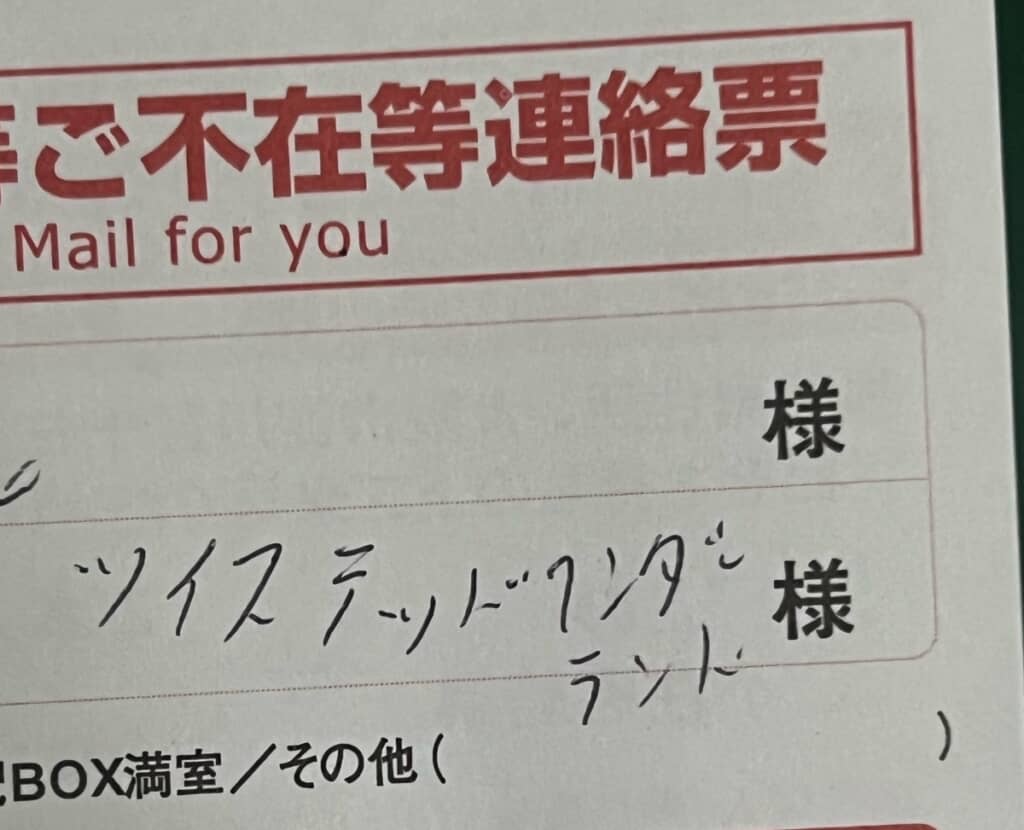 等ご不在等連絡票
Mail for you
様
ツイステッドワンダー 様
ランド
BOX満室／その他（　　　）